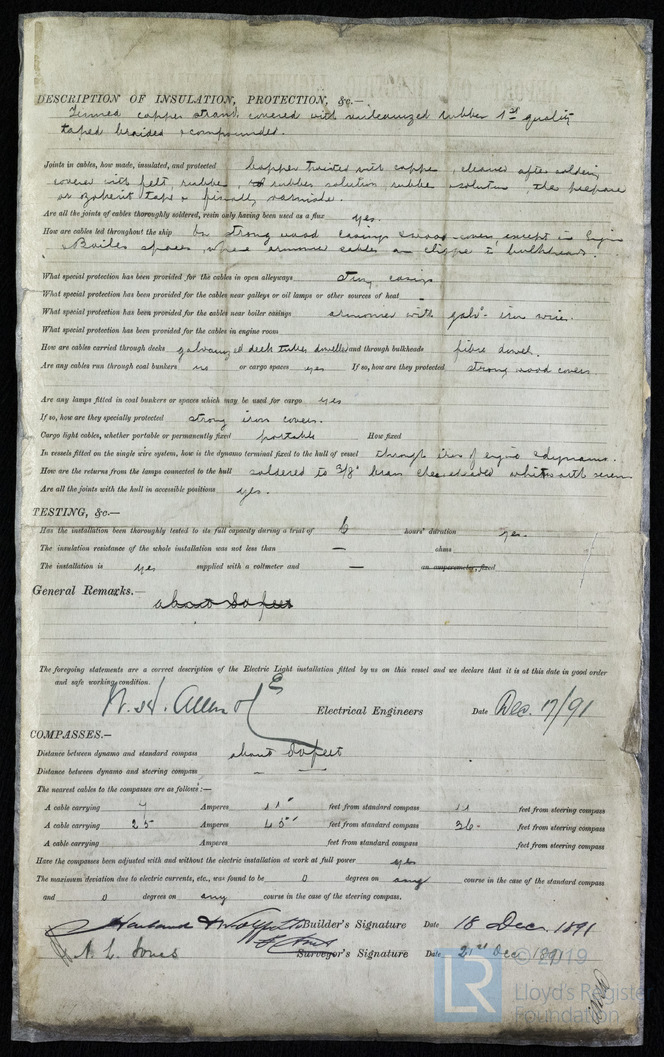 DESCRIPTION OF INSULATION, PROTECTION, &c.—
Tinned copper strand covered with vulcanized rubber 1st quality
taped braided & compounded.
Joints in cables, how made, insulated, and protected copper twisted with copper, cleaned after soldering
covered with felt, rubber, rubber solution, rubber solution the prepare
tape & finally varnished.
Are all the joints of cables thoroughly soldered, resin only having been used as a flux yes.
How are cables led throughout the ship In strong wood casings & wood covers, except in Engine
& Boiler spaces, where armoured cables are clipped to bulkheads.
What special protection has been provided for the cables in open alleyways strong casing
What special protection has been provided for the cables near galleys or oil lamps or other sources of heat —
What special protection has been provided for the cables near boiler casings armoured with galvd. iron wire.
What special protection has been provided for the cables in engine room
How are cables carried through decks galvanized deck tubes and through bulkheads fibre
Are any cables run through coal bunkers no or cargo spaces yes If so, how are they protected strong wood covers
Are any lamps fitted in coal bunkers or spaces which may be used for cargo yes
If so, how are they specially protected strong iron covers.
Cargo light cables, whether portable or permanently fixed portable How fixed
In vessels fitted on the single wire system, how is the dynamo terminal fixed to the hull of vessel through iron of engine & dynamo.
How are the returns from the lamps connected to the hull soldered to 3/8" brass
Are all the joints with the hull in accessible positions yes.
TESTING, &c.—
Has the installation been thoroughly tested to its full capacity during a trial of 6 hours' duration yes.
The insulation resistance of the whole installation was not less than — ohms
The installation is yes supplied with a voltmeter and — an amperemeter, fixed
General Remarks.—
about 50 feet
The foregoing statements are a correct description of the Electric Light installation fitted by us on this vessel and we declare that it is at this date in good order
and safe working condition.
W. H. Allen Electrical Engineers Date Dec. 17/91
COMPASSES.—
Distance between dynamo and standard compass about 50 feet
Distance between dynamo and steering compass — —
The nearest cables to the compasses are as follows:—
A cable carrying Amperes 11" feet from standard compass 11 feet from steering compass
A cable carrying 25 Amperes 45" feet from standard compass 36- feet from steering compass
A cable carrying Amperes feet from standard compass feet from steering compass
Have the compasses been adjusted with and without the electric installation at work at full power yes
The maximum deviation due to electric currents, etc., was found to be 0 degrees on any course in the case of the standard compass
and 0 degrees on any course in the case of the steering compass.
Harland & Wolff Builder's Signature Date 18 Decr. 1891
A. L. Jones Surveyor's Signature Date 21st Dec 1891
LR
© 2019
Lloyd's Register
Foundation